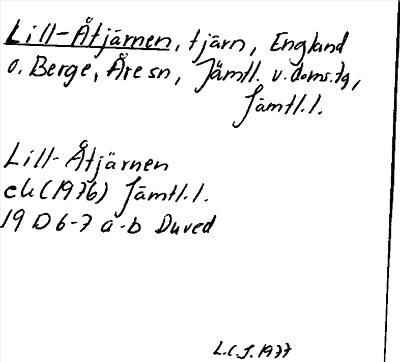 Lill-Åtjärnen, tjärn, England
o. Berge, Åre sn, Jämtl. v. doms.tg,
Jämtl.l.
Lill-Åtjärnen
ek (1976) Jämtl.l.
19 D 6-7 a-b Duved
L.C.J. 1977